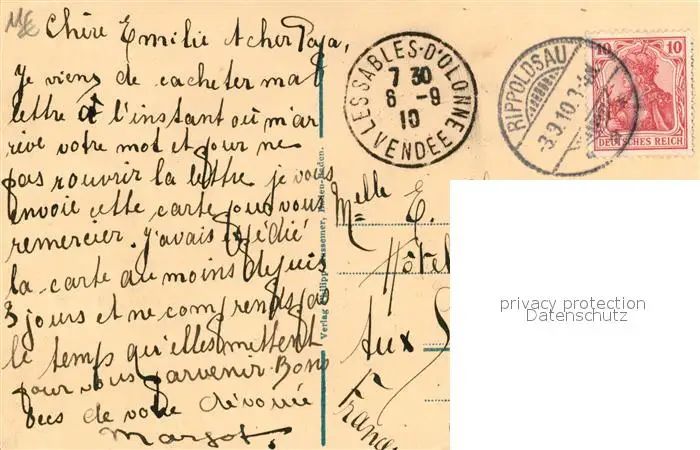 Chère Emilie et cher Papa,
je viens de cacheter ma
lettre à l'instant où m'ar
rive votre mot et pour ne
pas rouvrir la lettre je vous
envoie cette carte pour vous
remercier. J'avais expédié
la carte au moins depuis
3 jours et ne comprends pas
le temps qu'elles mettent
pour vous parvenir. Bons
becs de votre dévouée
Margot.
Verlag Philipp Baden-Baden.
LES SABLES-D'OLONNE
7 30
6 -9
10
VENDÉE
RIPPOLDSAU
-3.9.10.
10 10
DEUTSCHES REICH
Melle E.
Hôtel
Aux S
France
privacy protection
Datenschutz